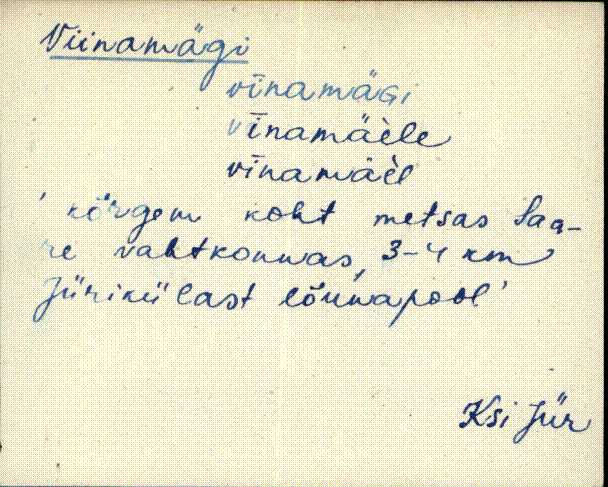 Viinamägi
vīnamäGi
vīnamäèle
vīnamäèl
' kõrgem koht metsas Saa-
re vahtkonnas, 3-4 km
Jüriküla​st lõunapool'
Ksi Jür